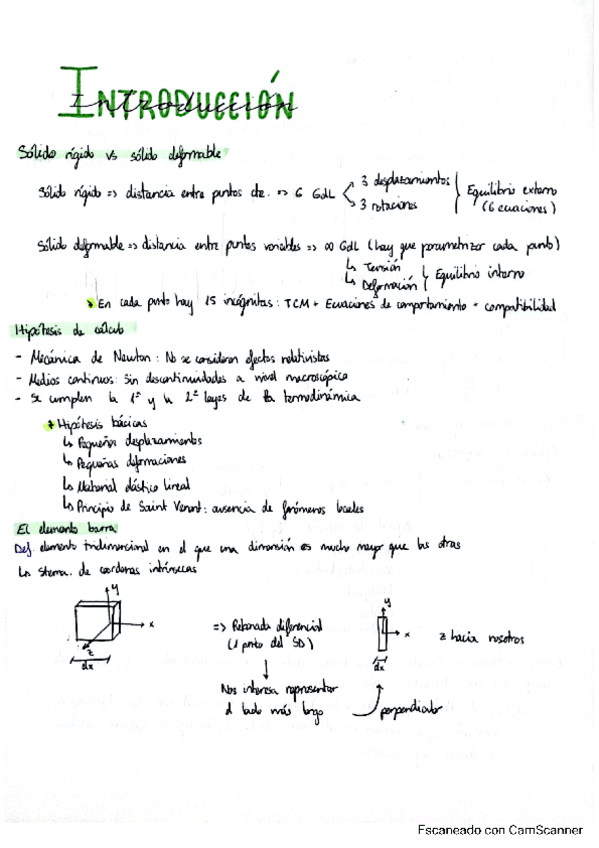 INTRODUCCIÓN
Sólido rígido vs sólido deformable
Sólido rígido => distancia entre puntos cte. => 6 GdL
3 desplazamientos
3 rotaciones
Equilibrio externo
(6 ecuaciones)
Sólido deformable => distancia entre puntos variables => ∞ GdL (hay que parametrizar cada punto)
↳ Tensión
↳ Deformación
Equilibrio interno
* En cada punto hay 15 incógnitas: TCM + Ecuaciones de comportamiento + compatibilidad
Hipótesis de cálculo
- Mecánica de Newton: No se consideran efectos relativistas
- Medios continuos: Sin discontinuidades a nivel macroscópico
- Se cumplen la 1ª y la 2ª leyes de la termodinámica
* Hipótesis básicas
↳ Pequeños desplazamientos
↳ Pequeñas deformaciones
↳ Material elástico lineal
↳ Principio de Saint Venant: ausencia de fenómenos locales
El elemento barra
Def. elemento tridimensional en el que una dimensión es mucho mayor que las otras
↳ Stema. de coordenas intrínsecas
y
x
z
dx
=> Rebanada diferencial
(1 punto del SD)
Nos interesa representar
el lado más largo
y
x
dx
z hacia nosotros
perpendicular
Escaneado con CamScanner